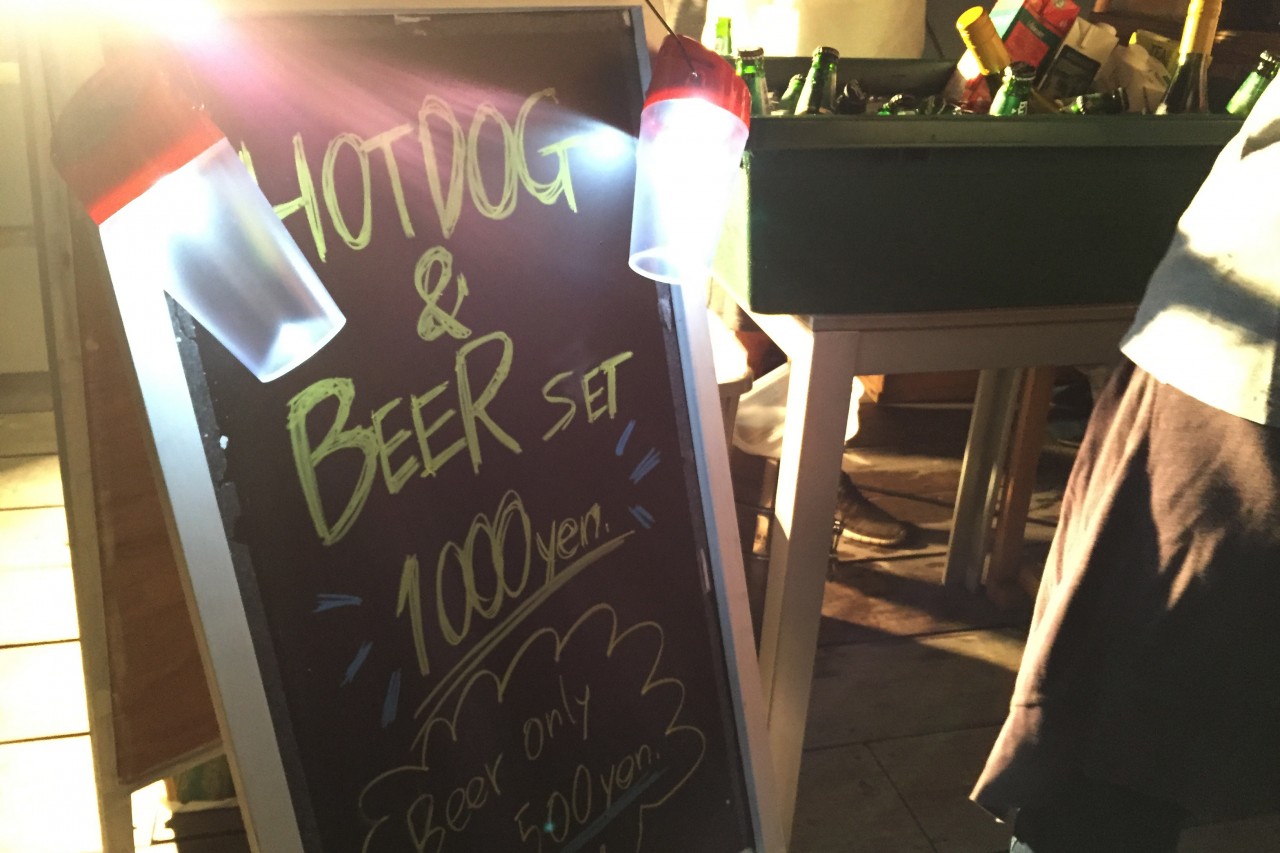 HOTDOG
&
BEER SET
1000yen.
Beer only
500yen.